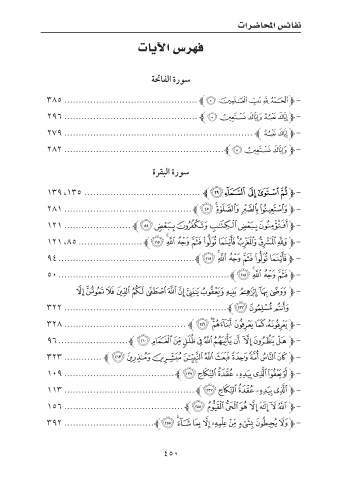 نفائس المحاضرات
فهرس الآيات
سورة الفاتحة
- ﴿ الْحَمْدُ لِلَّهِ رَبِّ الْعَالَمِينَ ۝٢ ﴾ ........ ٣٨٥
- ﴿ إِيَّاكَ نَعْبُدُ وَإِيَّاكَ نَسْتَعِينُ ۝٥ ﴾ ........ ٢٩٦
- ﴿ إِيَّاكَ نَعْبُدُ ﴾ ........ ٢٧٩
- ﴿ وَإِيَّاكَ نَسْتَعِينُ ۝٥ ﴾ ........ ٢٨٢
سورة البقرة
- ﴿ ثُمَّ اسْتَوَىٰ إِلَى السَّمَاءِ ۝٢٩ ﴾ ........ ١٣٥، ١٣٩
- ﴿ وَاسْتَعِينُوا بِالصَّبْرِ وَالصَّلَاةِ ۝٤٥ ﴾ ........ ٢٨١
- ﴿ أَفَتُؤْمِنُونَ بِبَعْضِ الْكِتَابِ وَتَكْفُرُونَ بِبَعْضٍ ۝٨٥ ﴾ ........ ١٢١
- ﴿ وَلِلَّهِ الْمَشْرِقُ وَالْمَغْرِبُ فَأَيْنَمَا تُوَلُّوا فَثَمَّ وَجْهُ اللَّهِ ۝١١٥ ﴾ ........ ٨٥، ١٢١
- ﴿ فَأَيْنَمَا تُوَلُّوا فَثَمَّ وَجْهُ اللَّهِ ۝١١٥ ﴾ ........ ٩٤
- ﴿ فَثَمَّ وَجْهُ اللَّهِ ۝١١٥ ﴾ ........ ٥٠
- ﴿ وَوَصَّىٰ بِهَا إِبْرَاهِيمُ بَنِيهِ وَيَعْقُوبُ يَابَنِيَّ إِنَّ اللَّهَ اصْطَفَىٰ لَكُمُ الدِّينَ فَلَا تَمُوتُنَّ إِلَّا
وَأَنْتُمْ مُسْلِمُونَ ۝١٣٢ ﴾ ........ ٣٢٢
- ﴿ يَعْرِفُونَهُ كَمَا يَعْرِفُونَ أَبْنَاءَهُمْ ۝١٤٦ ﴾ ........ ٣٢٨
- ﴿ هَلْ يَنْظُرُونَ إِلَّا أَنْ يَأْتِيَهُمُ اللَّهُ فِي ظُلَلٍ مِنَ الْغَمَامِ ۝٢١٠ ﴾ ........ ٩٦
- ﴿ كَانَ النَّاسُ أُمَّةً وَاحِدَةً فَبَعَثَ اللَّهُ النَّبِيِّينَ مُبَشِّرِينَ وَمُنْذِرِينَ ۝٢١٣ ﴾ ........ ٣٢٣
- ﴿ أَوْ يَعْفُوَ الَّذِي بِيَدِهِ عُقْدَةُ النِّكَاحِ ۝٢٣٧ ﴾ ........ ١٠٩
- ﴿ الَّذِي بِيَدِهِ عُقْدَةُ النِّكَاحِ ۝٢٣٧ ﴾ ........ ١١٣
- ﴿ اللَّهُ لَا إِلَٰهَ إِلَّا هُوَ الْحَيُّ الْقَيُّومُ ۝٢٥٥ ﴾ ........ ١٥٦
- ﴿ وَلَا يُحِيطُونَ بِشَيْءٍ مِنْ عِلْمِهِ إِلَّا بِمَا شَاءَ ۝٢٥٥ ﴾ ........ ٣٩٢
٤٥٠